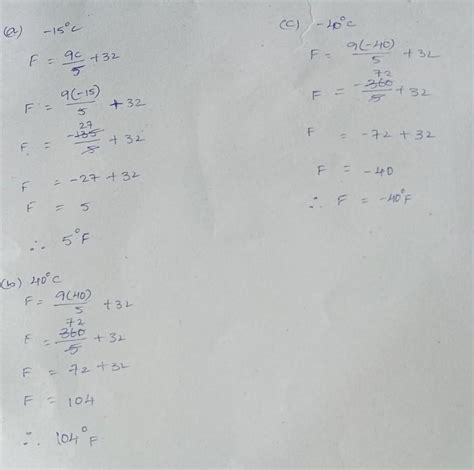 (a) -15°C
F = 9C/5 + 32
F = 9(-15)/5 + 32
27
F = -135/5 + 32
F = -27 + 32
F = 5
∴ 5°F
(b) 40°C
F = 9(40)/5 + 32
72
F = 360/5 + 32
F = 72 + 32
F = 104
∴ 104°F
(c) -40°C
F = 9(-40)/5 + 32
72
F = -360/5 + 32
F = -72 + 32
F = -40
∴ F = -40°F